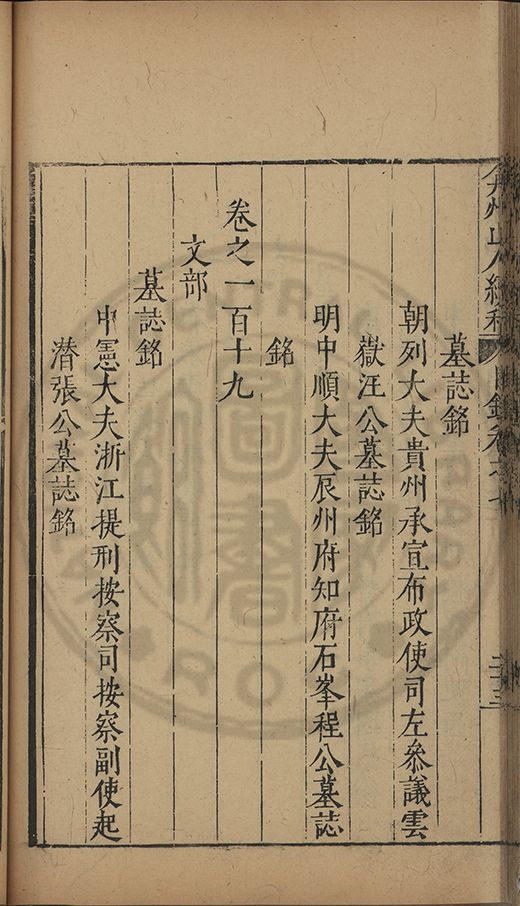 弇州山人續稿 目錄卷之
二十三
墓誌銘
朝列大夫貴州承宣布政使司左叅議雲
嶽汪公墓誌銘
明中順大夫辰州府知府石峯程公墓誌
銘
卷之一百十九
文部
墓誌銘
中憲大夫浙江提刑按察司按察副使起
潛張公墓誌銘